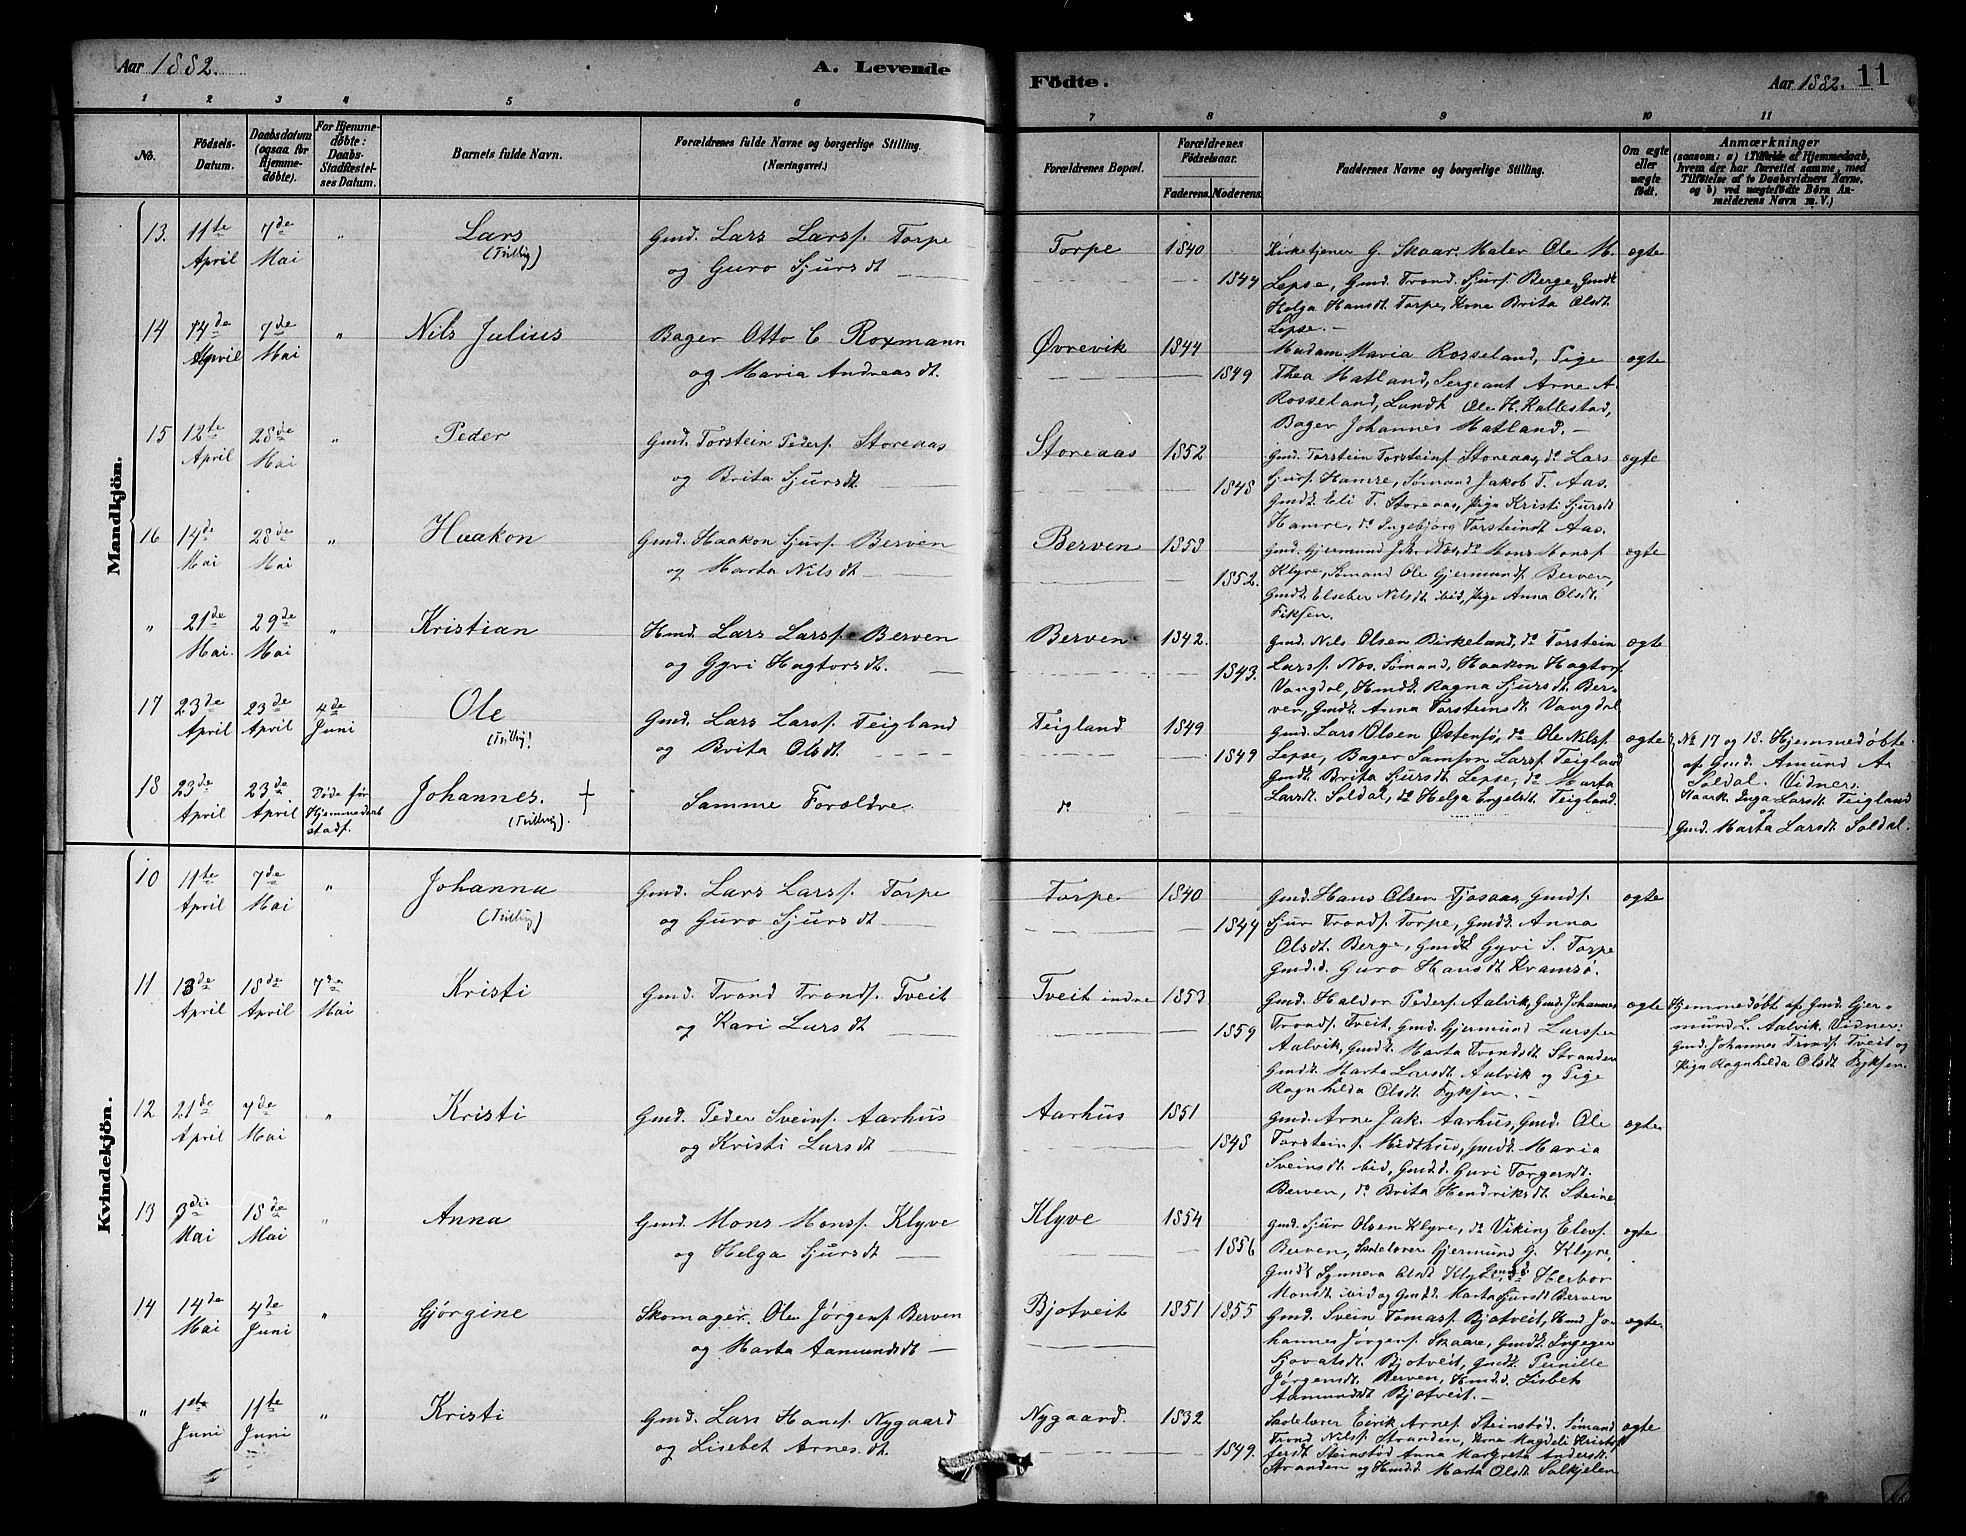 Aar 1882.
A. Levende
Födte.
Aar 1882. 11
1 2 3 4 5 6 7 8 9 10 11
No.
Födsels-
Datum.
Daabsdatum
(ogsaa for
Hjemme-
døbte).
For Hjemme-
døbte:
Daabs-
Stadfæstel-
ses Datum.
Barnets fulde Navn.
Forældrenes fulde Navne og borgerlige Stilling.
(Næringsvei.)
Forældrenes Bopæl.
Forældrenes
Födselsaar.
Faderens. Moderens.
Faddernes Navne og borgerlige Stilling.
Om ægte
eller
uægte
födt.
Anmærkninger
(saasom: a) i Tilfælde af Hjemmedaab,
hvem der har forrettet samme, med
Tilföielse af to Daabsvidners Navne,
og b) ved uægtefödte Börn An-
melderens Navn m. V.)
Mandkjön.
13. 11te April 7de Mai " Lars (Tvilling) Gmd. Lars Larss. Torpe Torpe 1840 Kirketjener G. Skaar, Maler Ole M. ægte
og Guro Sjursdt 1844 Lepse, Gmd. Trond Sjurs. Berge, Gmdt
Helga Hansdt Torpe, Kone Brita Olsdt
Lepse.
14 14de April 7de Mai " Nils Julius Bager Otto C Roxmann Øvrevik 1844 Madam Maria Rosseland, Pige ægte
og Maria Andreasdt. 1849 Thea Matland, Sergeant Arne A.
Rosseland, Lundh Ole H. Kallestad,
Bager Johannes Matland.
15 12te April 28de Mai " Peder Gmd. Torstein Peders. Storeaas Storeaas 1852 Gmd. Torstein Torsteins. Storeaas, do Lars ægte
og Brita Sjursdt. 1848 Sjurs. Hamre, Sømand Jakob T. Aas.
Gmdt Eli T. Storeaas, Pige Kristi Sjursdt
Hamre, do Ingebjörg Torsteindt Aas.
16 14de Mai 28de Mai " Haakon Gmd. Haakon Sjurs. Berven Berven 1853 Gmd. Gjermund Joh. Næs do Mons Monss. ægte
og Marta Nilsdt 1852. Klyve, Sømand Ole Gjermunds. Berven,
Gmdt. Elseber Nilsdt ibid, Pige Anna Olsdt.
Fiksen.
" 21de Mai. 29de Mai " Kristian Hmd. Lars Larss. Berven Berven 1842. Gmd. Nils Olsen Birkeland, do Torstein ægte
og Gyvi Hagtorsdt. 1843. Larss. Nos. Sømand, Haakon Hagtors.
Vangdal, Hmdt. Ragna Sjursdt Ber-
ven, Gmdt. Anna Torsteinsdt. Vangdal
17 23de April 23de April 4de Juni Ole (Tvilling) Gmd. Lars Larss. Teigland Teigland 1849 Gmd. Lars Olsen Østensö, do Ole Nilss. ægte
og Brita Olsdt. 1849 Lepse, Bager Samson Larss. Teigland
Gmdt. Brita Sjursdt Lepse, do Marta
Larsdt. Soldal, do Helga Engelsdt Teigland.
No 17 og 18. Hjemmedøbte
af Gmd. Amund A.
Soldal. Vidner:
Haark. Inga Larsdt Teigland
og
Gmd. Marta Larsdt Soldal.
18 23de April 23de April Døde før Hjemmedaab stadf. Johannes. † (Tvilling). Samme Forældre do
Kvindekjön.
10 11te April 7de Mai " Johanna (Tvilling) Gmd. Lars Larss. Torpe Torpe 1840 Gmd. Hans Olsen Tjosaas, Gmds. ægte
og Guro Sjursdt 1844 Sjur Tronds. Torpe, Gmdt. Anna
Olsdt. Berge, Gmdt Gyvi S. Torpe
Gmd.d. Guro Hansdt Kvamsö.
11 13de April 18de April 7de Mai Kristi Gmd. Trond Tronds. Tveit Tveit indre 1853 Gmd. Haldor Peders. Aalvik, Gmd. Johannes ægte
og Kari Larsdt 1859 Tronds. Tveit, Gmd. Gjermund Larss.
Aalvik, Gmdt. Marta Trondsdt Stranden
Gmdt. Marta Larsdt Aalvik og Pige
Ragnhilda Olsdt. Fyksen.
Hjemmedøbt af Gmd. Gjer-
mund L. Aalvik. Vidner:
Gmd. Johannes Tronds. Tveit og
Pige Ragnhilda Olsdt Fyksen.
12 21de April 7de Mai " Kristi Gmd. Peder Sveins. Aarhus Aarhus 1851 Gmd. Arne Jak. Aarhus, Gmd. Ole ægte
og Kristi Larsdt 1848 Torsteins. Midthus, Gmdt. Maria
Sveinsdt ibid, Gmd.d. Guri Torgersdt.
Berven, do Brita Hendriksdt Steine
13 3die Mai 18de Mai " Anna Gmd. Mons Monss. Klyve Klyve 1854 Gmd. Sjur Olsen Klyve, do Viking Elevs. ægte
og Helga Sjursdt 1856 Berven, Skolelærer Gjermund G. Klyve,
Gmdt Synneva Olsdt Klyve, do Herbor
Monsdt ibid og Gmdt. Marta Sjursdt Berven
14 14de Mai 4de Juni " Gjørgine Skomager. Ole Jørgens. Berven Bjotveit 1851 1855 Gmd. Svein Tomass. Bjotveit, Hmd Jo- ægte
og Marta Aamundsdt hannes Jørgens. Skaare, Gmdt. Ingeger
Sjovatsdt. Bjotveit, Gmdt. Pernille
Jørgensdt. Berven, Hmd.d. Lisbet
Aamundsdt Bjotveit.
" 1ste Juni 11te Juni " Kristi Gmd. Lars Hanss. Nygaard Nygaard. 1832 Skolelærer Eirik Arnes. Steinstød. Sømand ægte
og Lisebet Arnesdt. 1849. Trond Nilss. Stranden, Kone Magdeli Kristo-
fersdt. Steinstød Anna Margreta Andersdt.
Stranden og Hmd.d Marta Olsdt Solkjelen